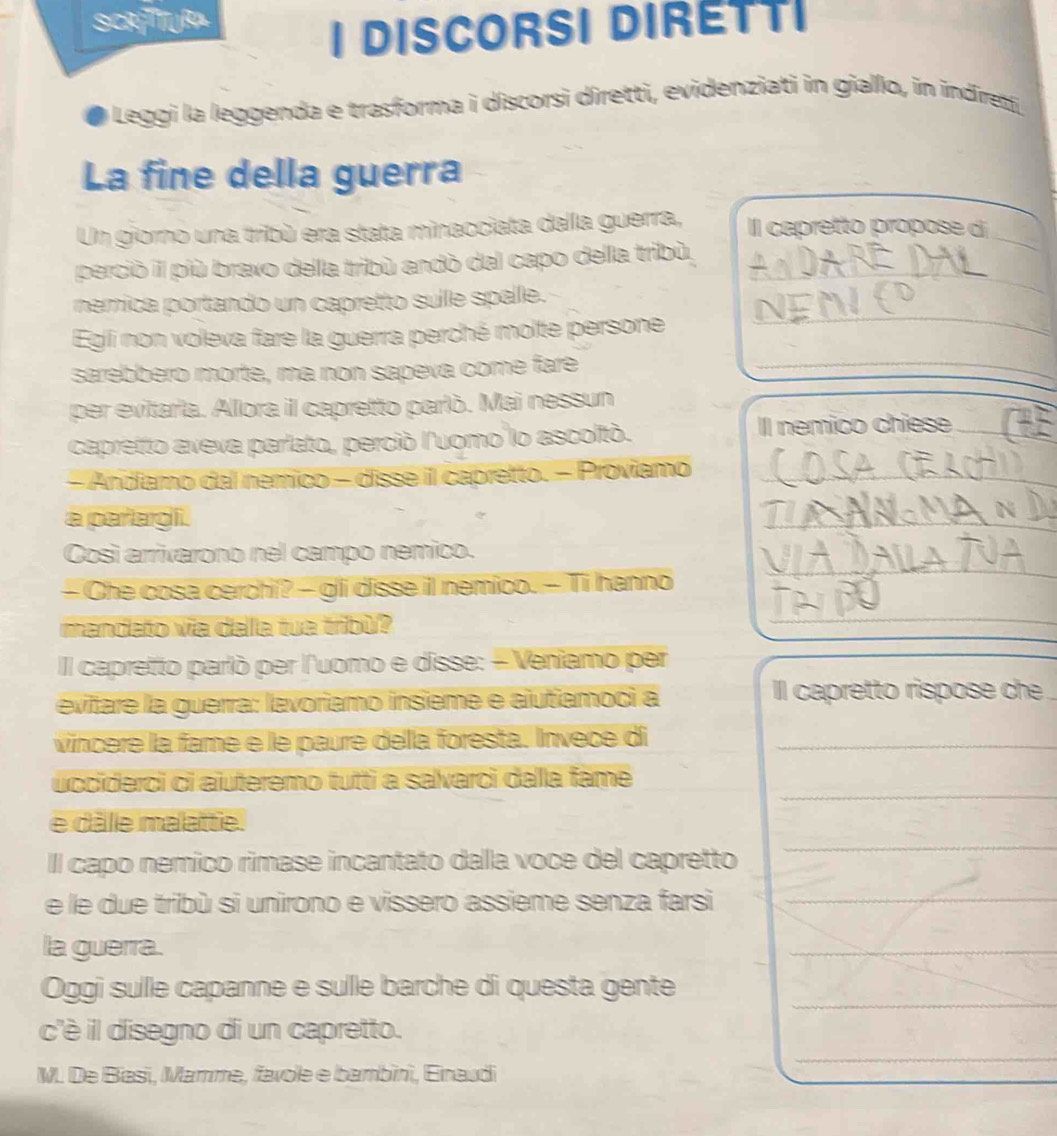 SCRITTURA
I DISCORSI DIRETTI
Leggi la leggenda e trasforma i discorsi diretti, evidenziati in giallo, in indiretti.
La fine della guerra
Un giorno una tribù era stata minacciata dalla guerra,
perciò il più bravo della tribù andò dal capo della tribù
nemica portando un capretto sulle spalle.
Egli non voleva fare la guerra perché molte persone
sarebbero morte, ma non sapeva come fare
per evitarla. Allora il capretto parlò. Mai nessun
capretto aveva parlato, perciò l'uomo lo ascoltò.
– Andiamo dal nemico – disse il capretto. – Proviamo
a parlargli.
Così arrivarono nel campo nemico.
– Che cosa cerchi? – gli disse il nemico. – Ti hanno
mandato via dalla tua tribù?
Il capretto parlò per l'uomo e disse: – Veniamo per
evitare la guerra: lavoriamo insieme e aiutiamoci a
vincere la fame e le paure della foresta. Invece di
ucciderci ci aiuteremo tutti a salvarci dalla fame
e dalle malattie.
Il capo nemico rimase incantato dalla voce del capretto
e le due tribù si unirono e vissero assieme senza farsi
la guerra.
Oggi sulle capanne e sulle barche di questa gente
c'è il disegno di un capretto.
M. De Biasi, Mamme, favole e bambini, Einaudi
Il capretto propose di
ANDARE DAL
NEMICO
Il nemico chiese CHE
COSA CERCHI
VIA DALLA TUA
TRIBÙ
Il capretto rispose che